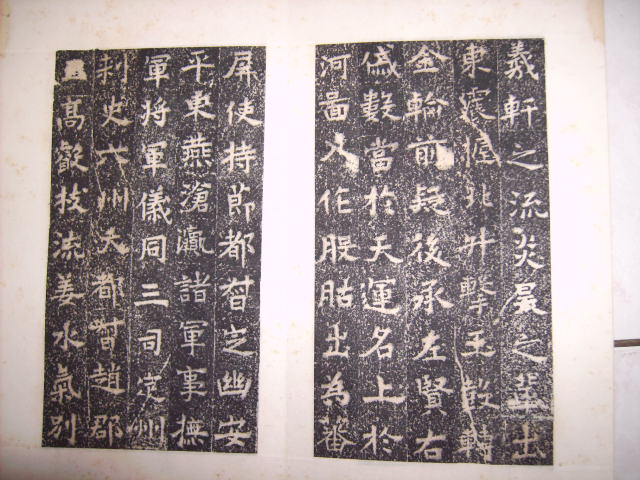 羲軒之流炎昊之輩出
東震握北斗擊玉鼓轉
金輪前疑後承左賢右
戚數當於天運名上於
河圖入作股肱出為蕃
屏使持節都督定幽安
平東燕滄瀛諸軍事撫
軍將軍儀同三司定州
刺史六州大都督趙郡
高叡枝流姜水氣別